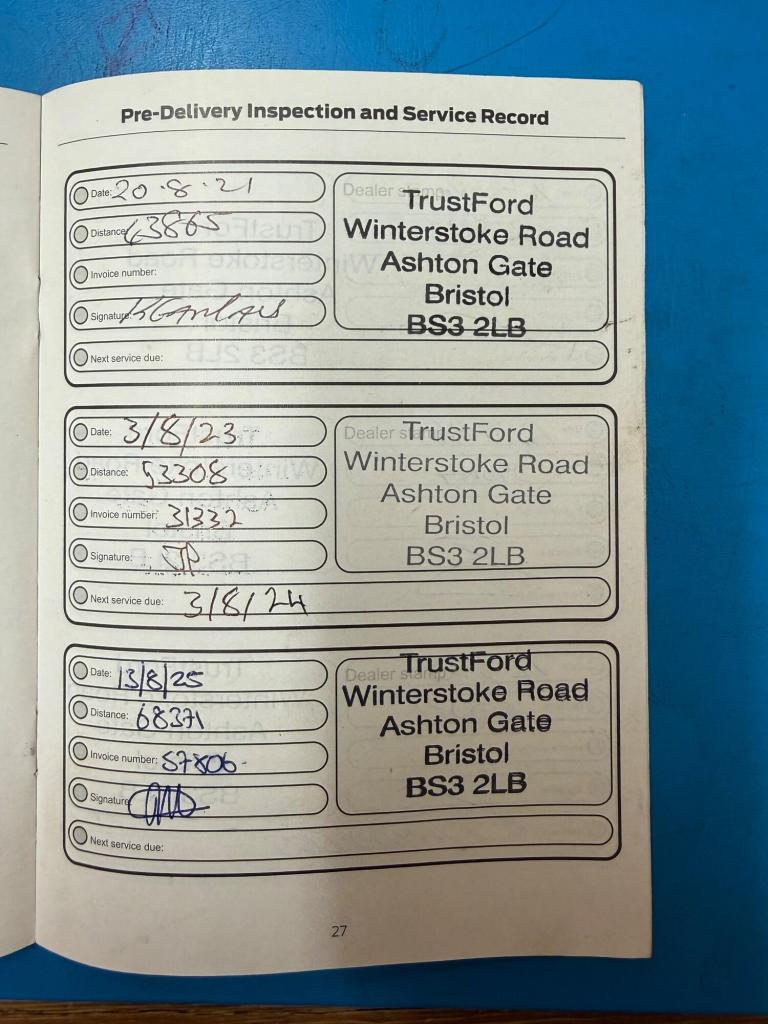 Pre-Delivery Inspection and Service Record
Date: 20.8.21
Distance: 63865
Invoice number:
Signature:
Next service due:
Dealer stamp:
TrustFord
Winterstoke Road
Ashton Gate
Bristol
BS3 2LB
Date: 3/8/23
Distance: 53308
Invoice number: 31332
Signature: JP
Next service due: 3/8/24
Dealer stamp:
TrustFord
Winterstoke Road
Ashton Gate
Bristol
BS3 2LB
Date: 13/8/25
Distance: 68371
Invoice number: 57806
Signature:
Next service due:
Dealer stamp:
TrustFord
Winterstoke Road
Ashton Gate
Bristol
BS3 2LB
27